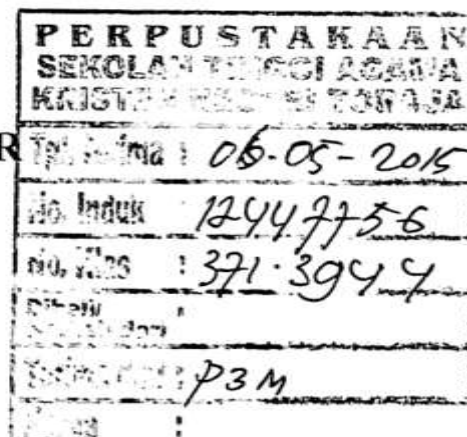 PERPUSTAKAAN
SEKOLAH TINGGI AGAMA
KRISTEN NEGERI TORAJA
R
Tgl. Terima : 06-05-2015
No. Induk 12447756
No. Klas : 371.3944
:
Terima dari : P3M
: